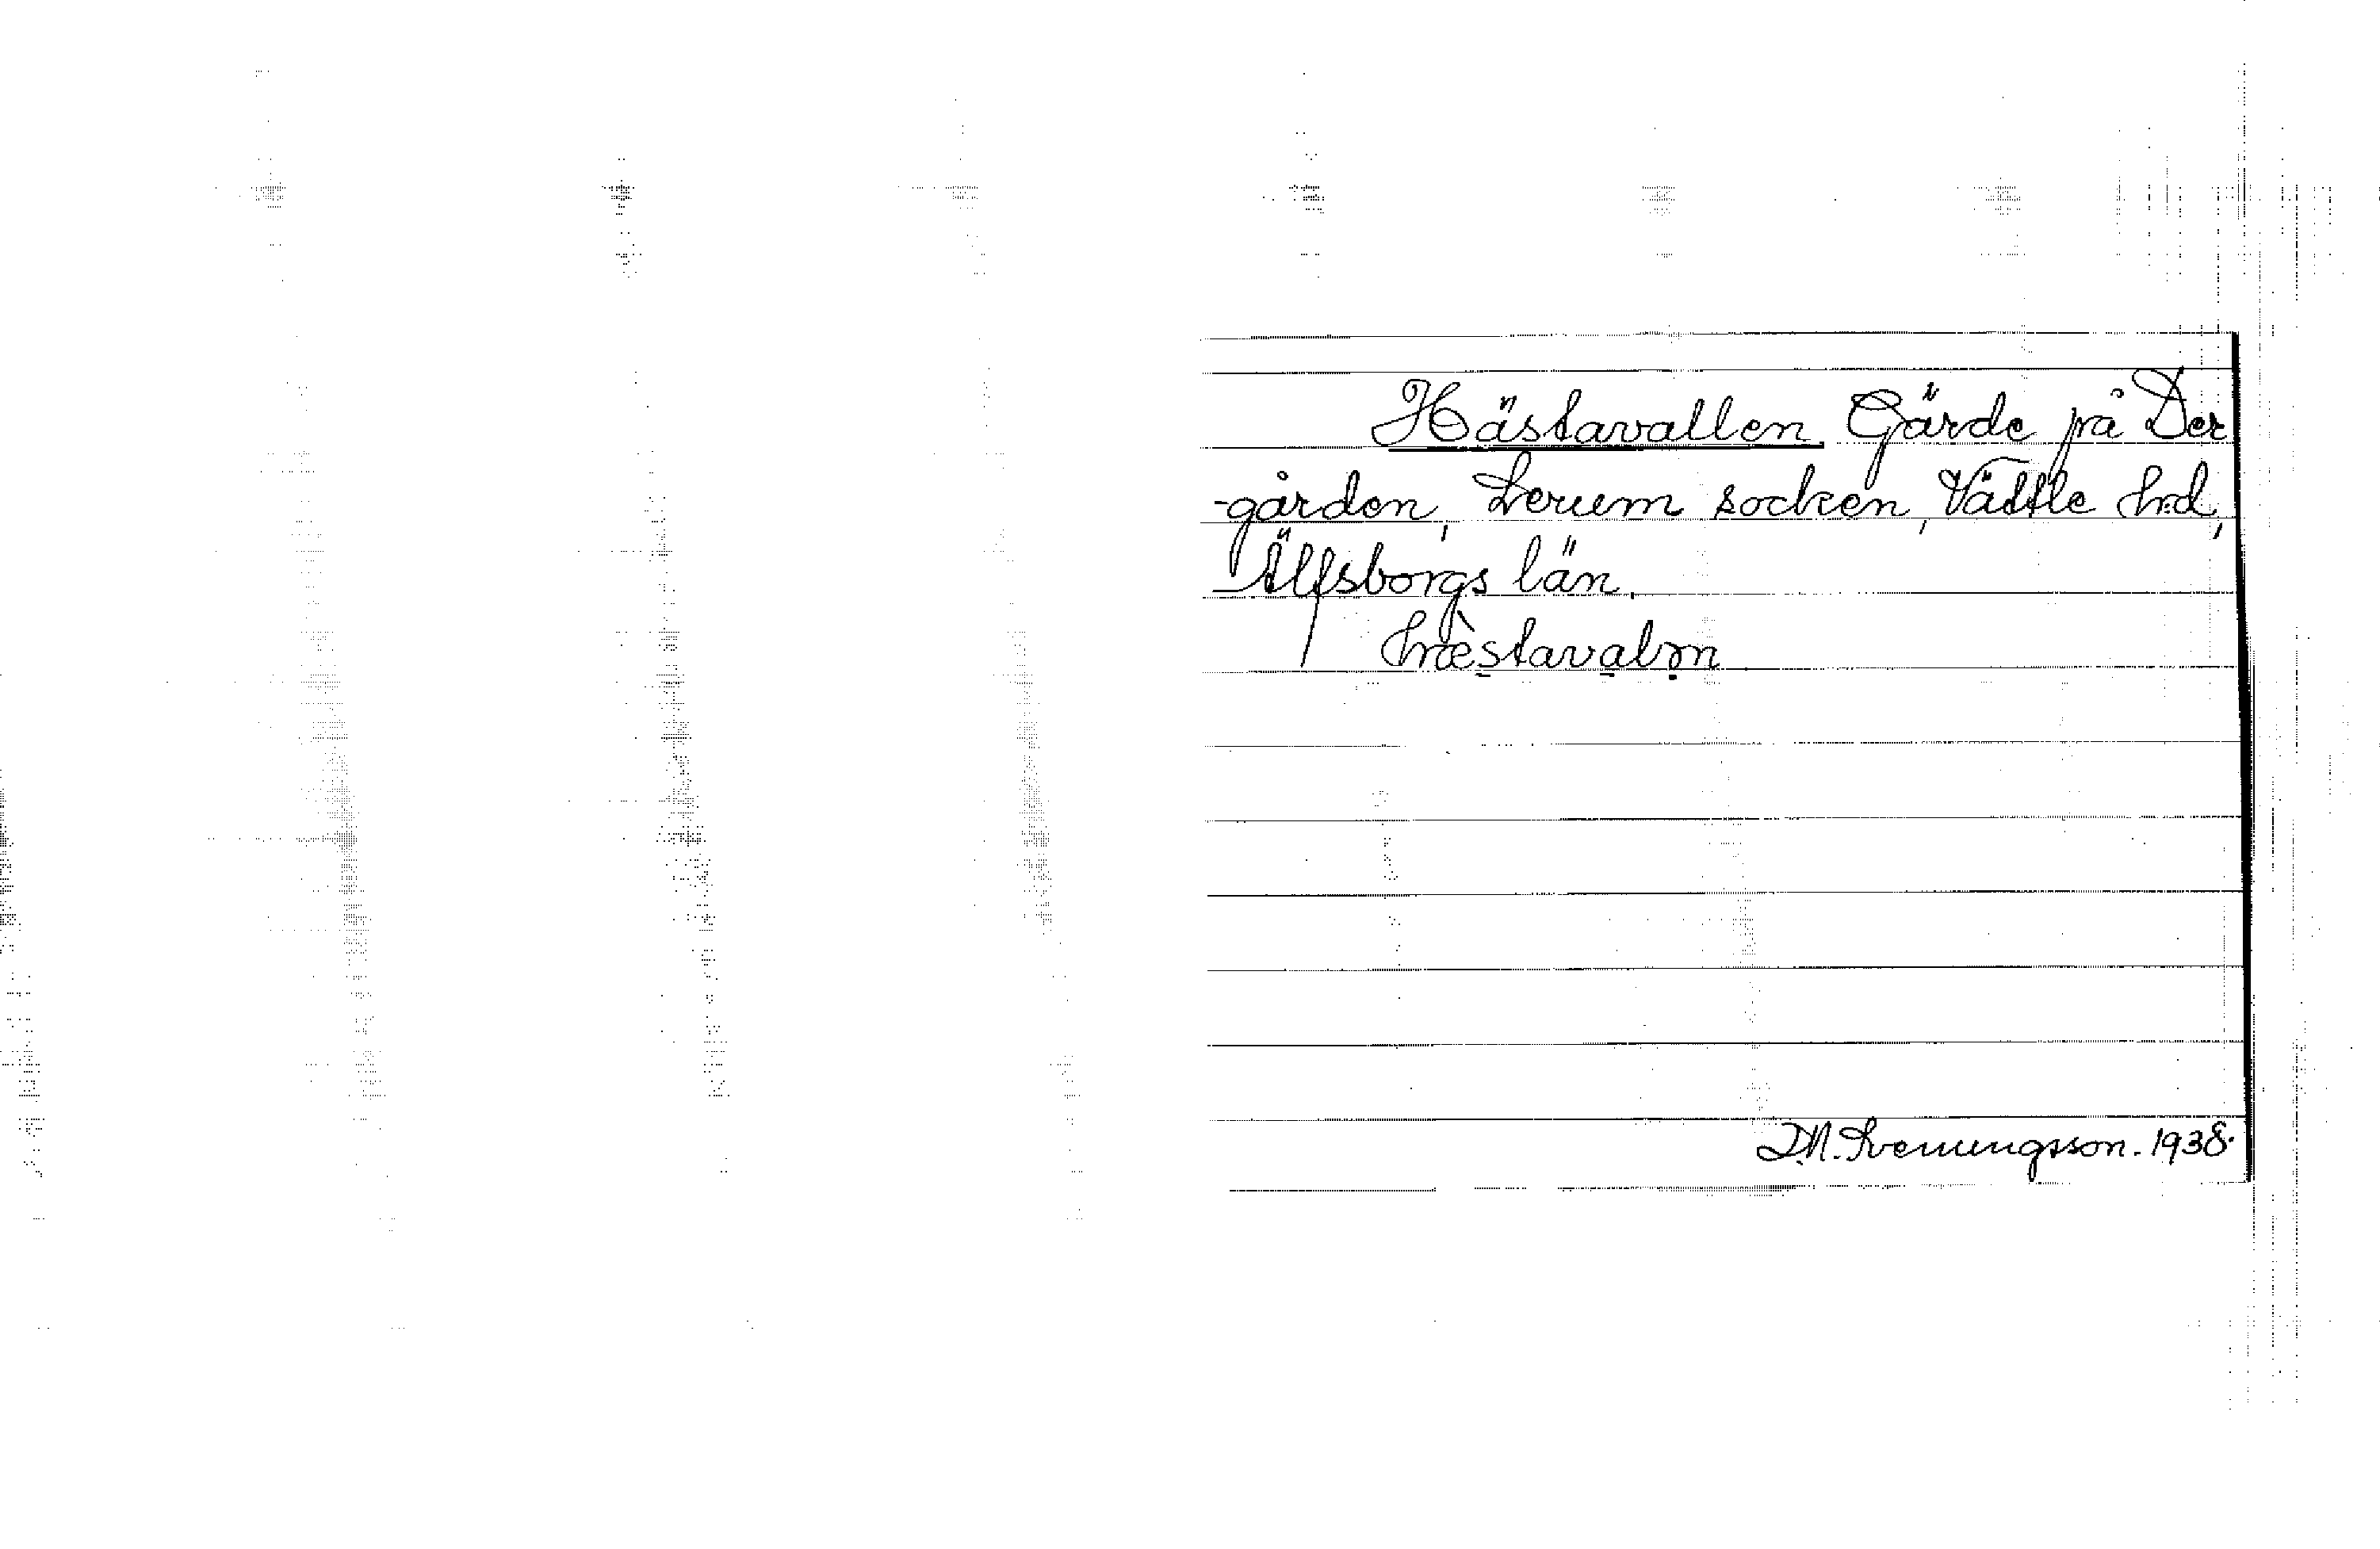 Hästavallen. Gärde på Der
-gården, Lerum socken, Vättle hd,
Älfsborgs län.
hæ̀stavalm̥
D.N. Svenungsson. 1938.